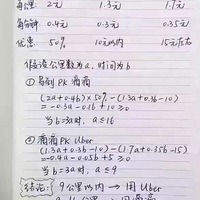 每公里 2元 1.3元 1.7元
每分钟 0.4元 0.3元 0.35元
优惠: 50% 10元以内 15元左右
假设公里数为a,时间为b
① 易到 PK 滴滴
(2a+0.4b)×50% - (1.3a+0.3b-10)
= -0.3a-0.1b+10 ≥0
当b=3a时, a≤16
② 滴滴 PK Uber
(1.3a+0.3b-10) - (1.7a+0.35b-15)
= -0.4a-0.05b+5≥0
当b=3a时, a≤9
结论: 9公里以内 → 用 Uber